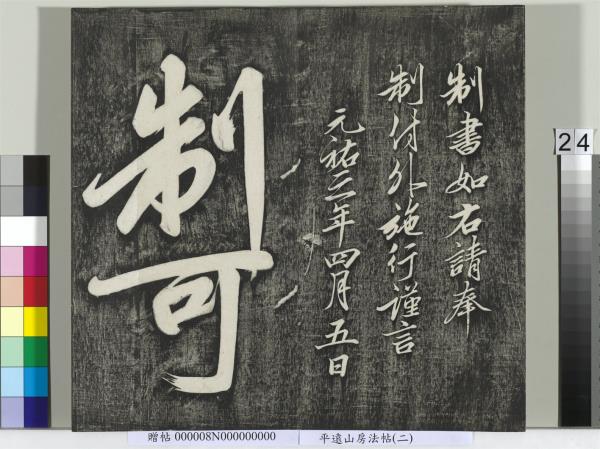 制書如右請奉
制付外施行謹言
元祐三年四月五日
制可
24
贈帖 000008N000000000
平遠山房法帖(二)